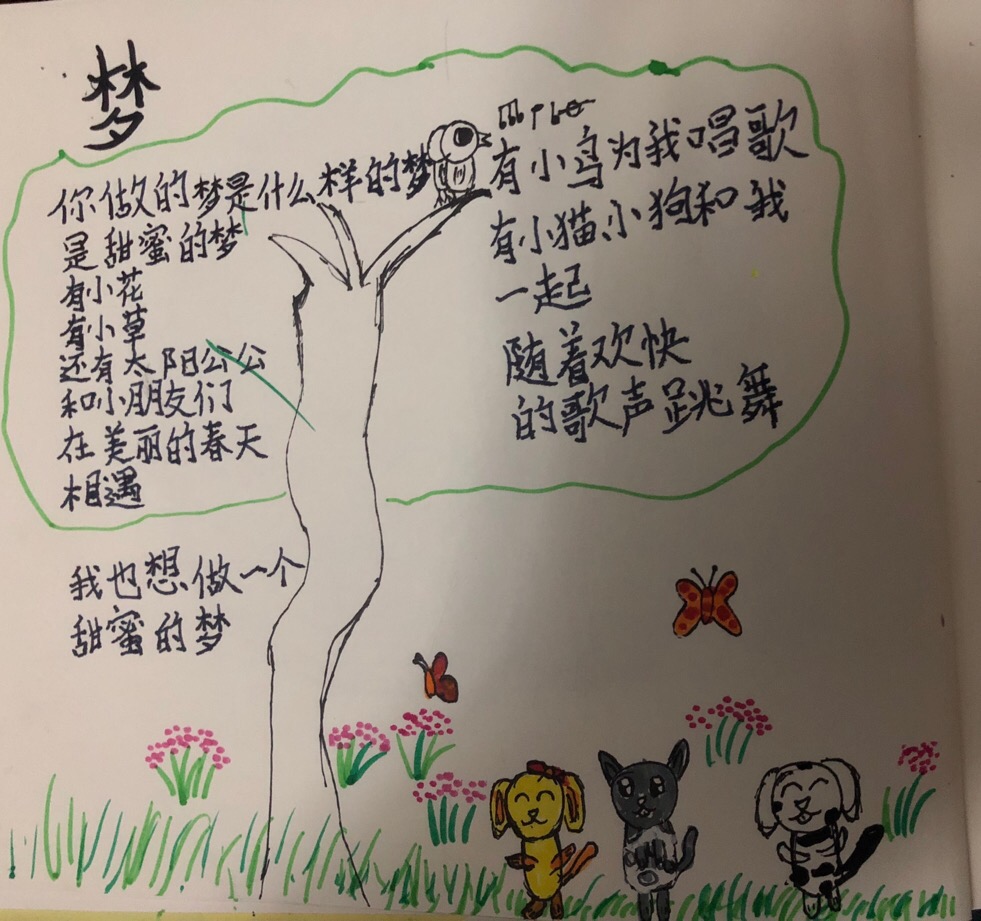 梦
你做的梦是什么样的梦
是甜蜜的梦
有小花
有小草
还有太阳公公
和小朋友们
在美丽的春天
相遇
有小鸟为我唱歌
有小猫、小狗和我
一起
随着欢快
的歌声跳舞
我也想做一个
甜蜜的梦